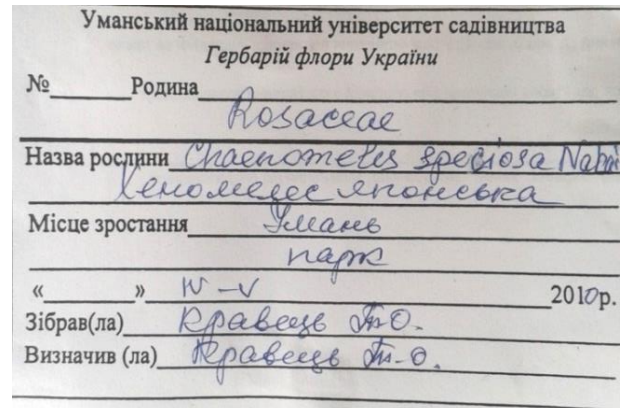 Уманський національний університет садівництва
Гербарій флори України
№ Родина
Rosaceae
Назва рослини Chaenomeles speciosa
Хеномелес японська
Місце зростання Умань
парк
« » IV-V 2010р.
Зібрав(ла) Кравець Т.О.
Визначив (ла) Кравець Т.О.